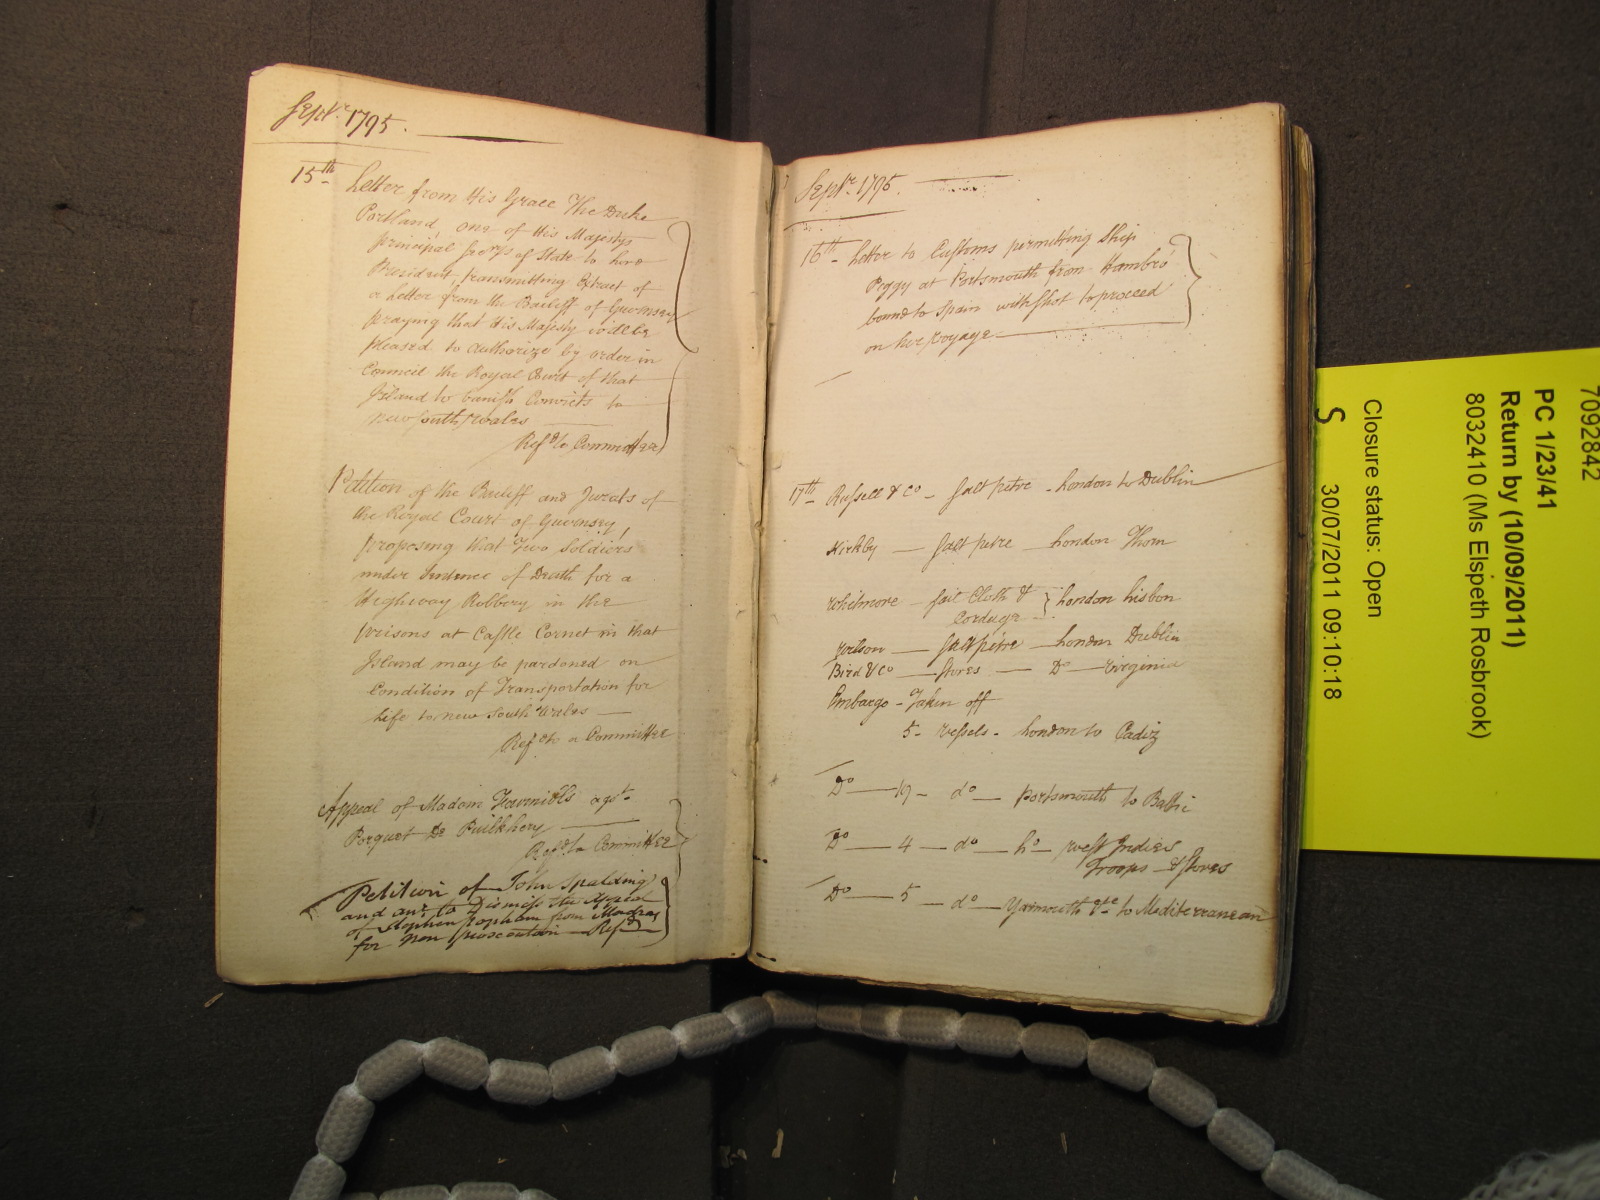 Septr. 1795.
15th Letter from His Grace The Duke
Portland, one of His Majestys
principal Secrys of State to Lord
President transmitting Extract of
a Letter from the Bailiff of Guernsey
praying that His Majesty
pleased to authorize by order in
Council the Royal Court of that
Island to banish Convicts to
New South Wales
Refd to Committee
Petition of the Bailiff and Jurats of
the Royal Court of Guernsey,
proposing that Two Soldiers
under Sentence of Death for a
Highway Robbery in the
prisons at Castle Cornet in that
Island may be pardoned on
Condition of Transportation for
Life to New South Wales
Refd to a Committee
Appeal of Madam agst.
Porquet De
Refd to Committee
Petition of John Spalding
and anr. to Dismiss the Appeal
of Stephen Popham from Madras
for Non prosecution Refd
Septr. 1795.
16th Letter to Customs permitting Ship
Peggy at Portsmouth from Hambro'
bound to Spain with Shot to proceed
on her voyage
17th Russell & Co - Salt petre - London to Dublin
Kirkby — Salt petre — London Thorn
Whitmore — Sail Cloth & } London Lisbon
Cordage
Wilson — Salt petre — London Dublin
Bird & Co — Stores — Do — Virginia
Embargo - Taken off
5 - Vessels - London to Cadiz
Do — 19 - do — Portsmouth to Baltic
Do — 4 — do — Lo — West Indies
Troops & Stores
Do — 5 — do — Yarmouth &ce to Mediterranean
7092842
PC 1/23/41
Return by (10/09/2011)
8032410 (Ms Elspeth Rosbrook)
Closure status: Open
S 30/07/2011 09:10:18